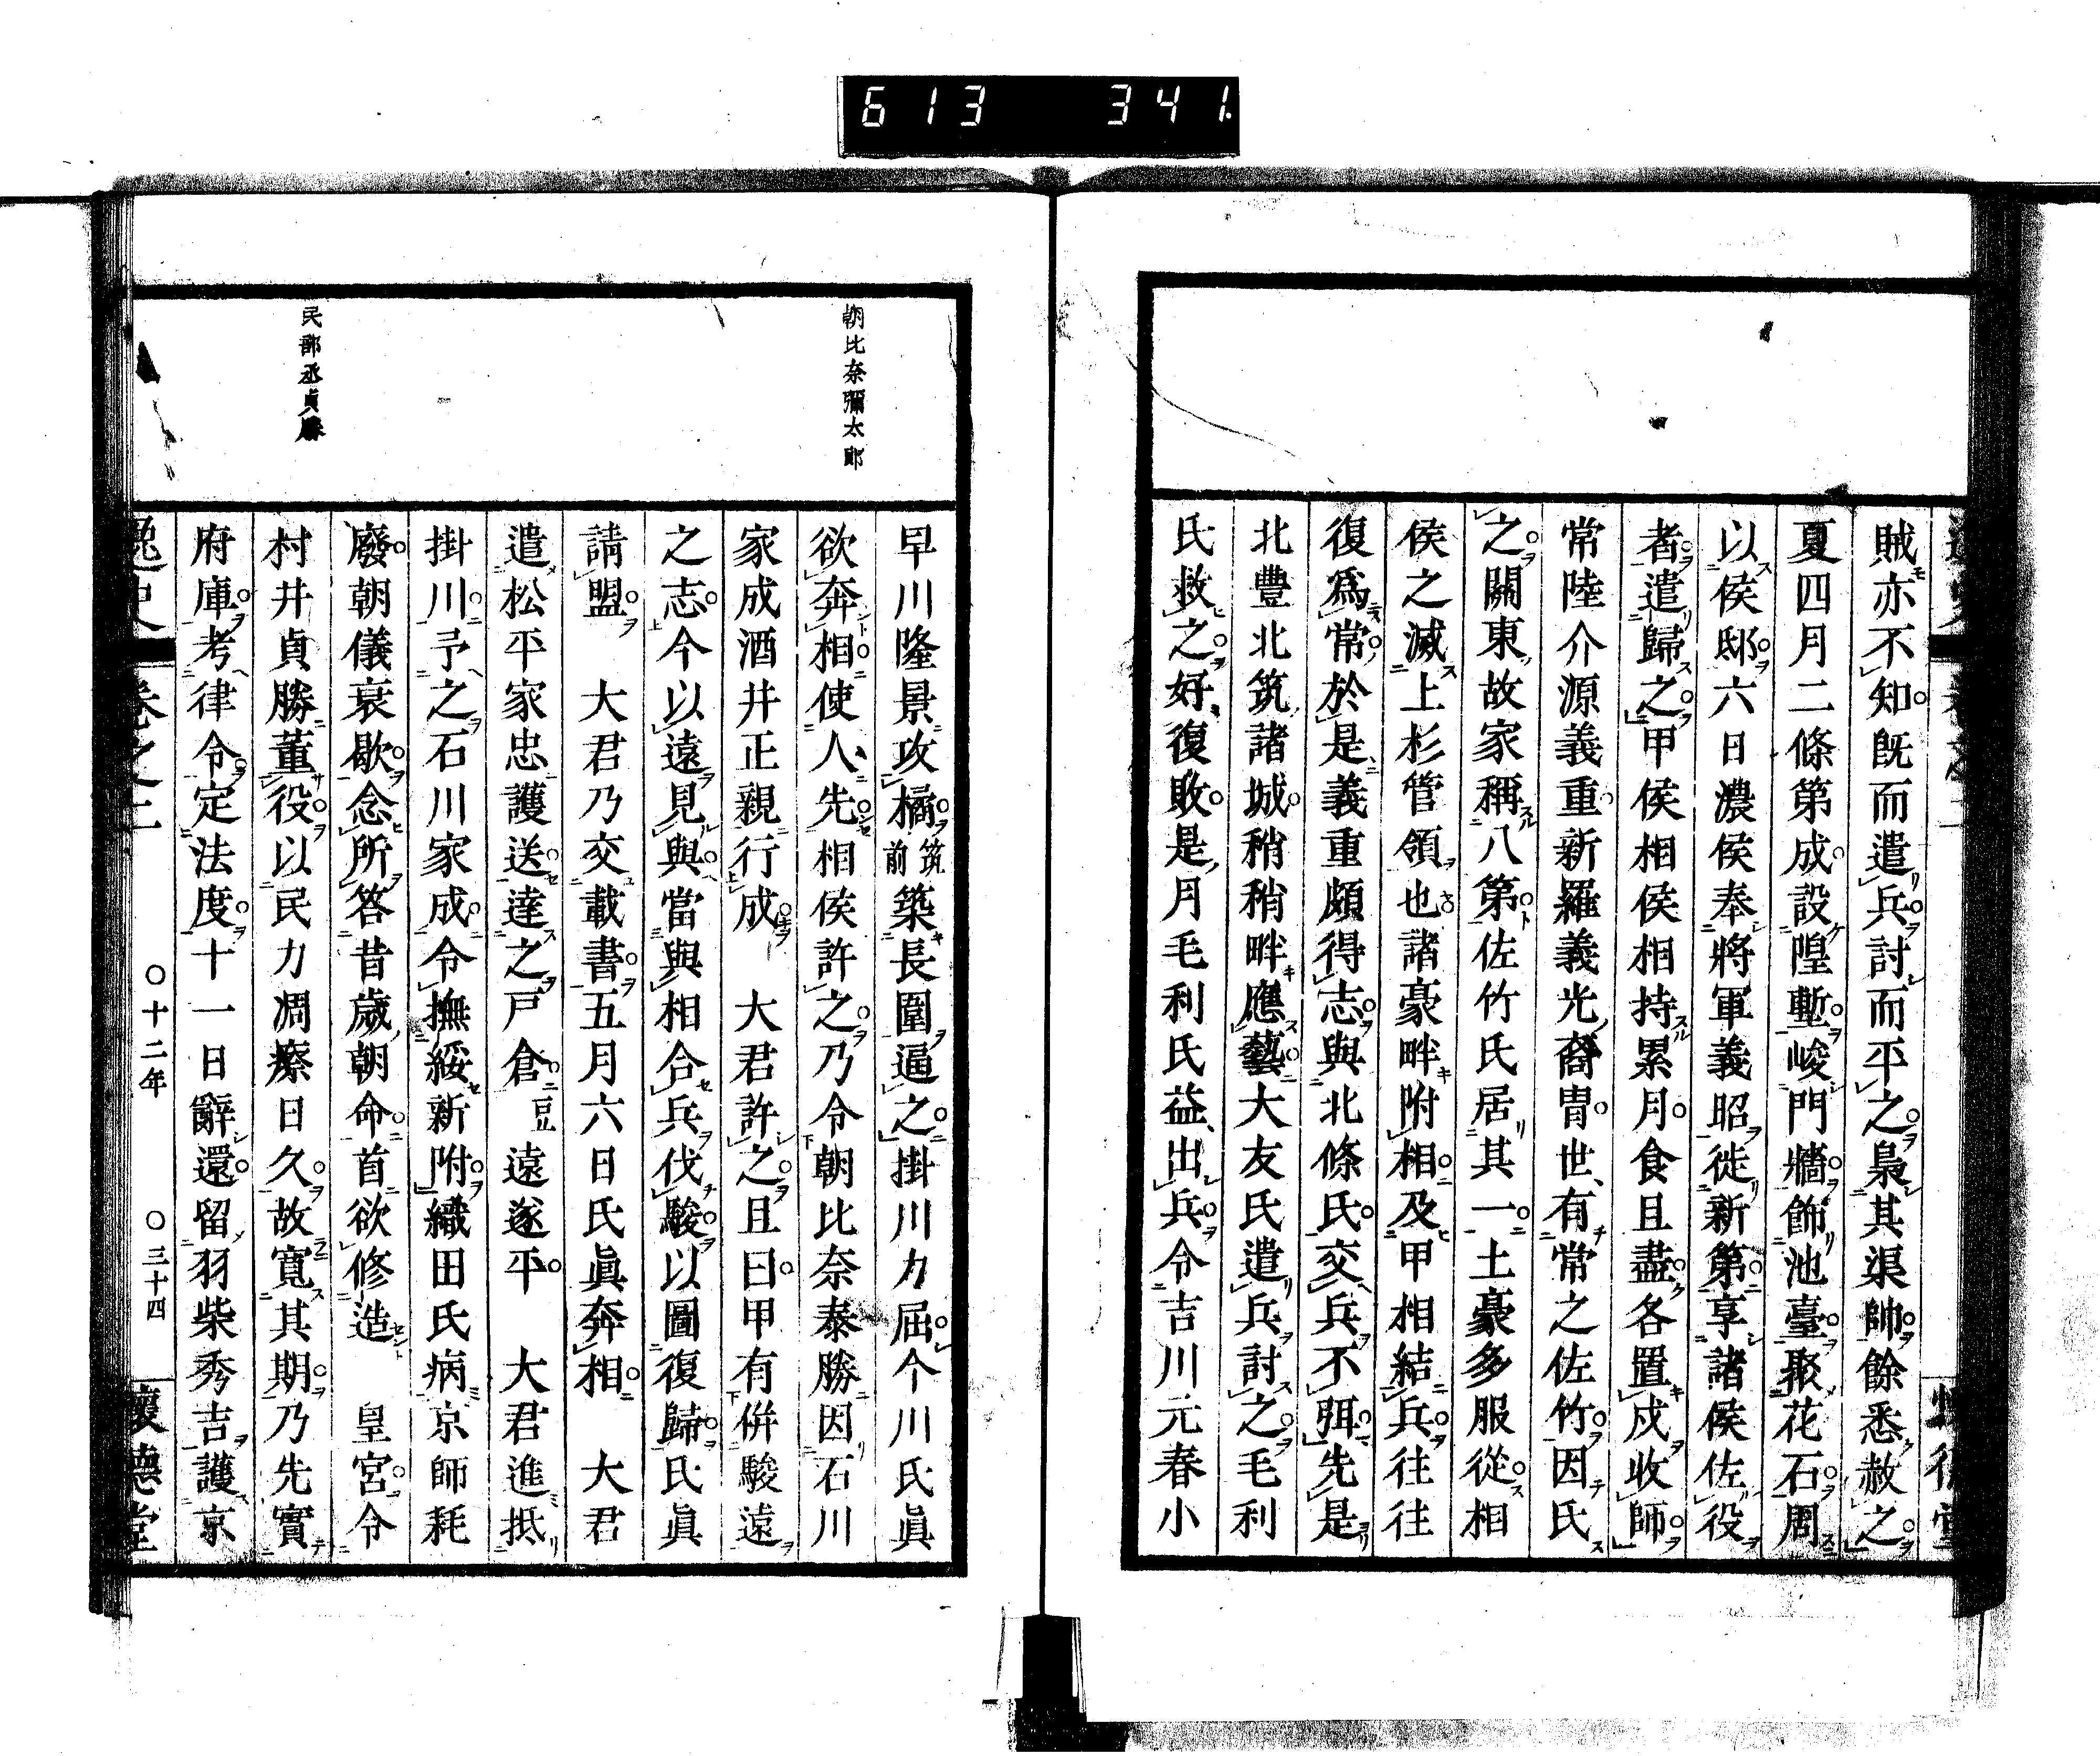 613 341.
賊亦不知既而遣兵討而平之梟其渠帥餘悉赦之
夏四月二條第成設隍塹峻門牆飾池臺聚花石周
以侯邸六日濃侯奉將軍義昭徙新第享諸侯佐役
者遣歸之甲侯相侯相持累月食且盡各置戍收師
常陸介源義重新羅義光裔冑世有常之佐竹因氏
之關東故家稱八第佐竹氏居其一土豪多服從相
侯之滅上杉管領也諸豪畔附相及甲相結兵往往
復爲常於是義重頗得志與北條氏交兵不弭先是
北豐北筑諸城稍稍畔應藝大友氏遣兵討之毛利
氏救之好復敗是月毛利氏益出兵令吉川元春小
早川隆景攻橘筑前築長圍逼之掛川力屈今川氏眞
欲奔相使人先相侯許之乃令朝比奈泰勝因石川
家成酒井正親行成　大君許之且曰甲有併駿遠
之志今以遠見與當與相合兵伐駿以圖復歸氏眞
請盟　大君乃交載書五月六日氏眞奔相　大君
遣松平家忠護送達之戸倉豆遠遂平　大君進抵
掛川予之石川家成令撫綏新附織田氏病京師耗
廢朝儀衰歇念所答昔歲朝命首欲修造　皇宮令
村井貞勝董役以民力凋瘵日久故寬其期乃先實
府庫考律令定法度十一日辭還留羽柴秀吉護京
朝比奈彌太郎
民部丞貞勝
逸史 卷之二 〇十二年 〇三十四 懷德堂